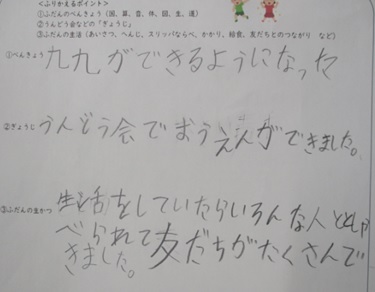 <ふりかえるポイント>
①ふだんのべんきょう(国、算、音、体、図、生、道)
②うんどう会などの「ぎょうじ」
③ふだんの生活(あいさつ、へんじ、スリッパならべ、かかり、給食、友だちとのつながり など)
①べんきょう 九九ができるようになった
②ぎょうじ うんどう会でおうえんができました。
③ふだんの生かつ 生活をしていたらいろんな人としゃ
べられて友だちがたくさんで
きました。